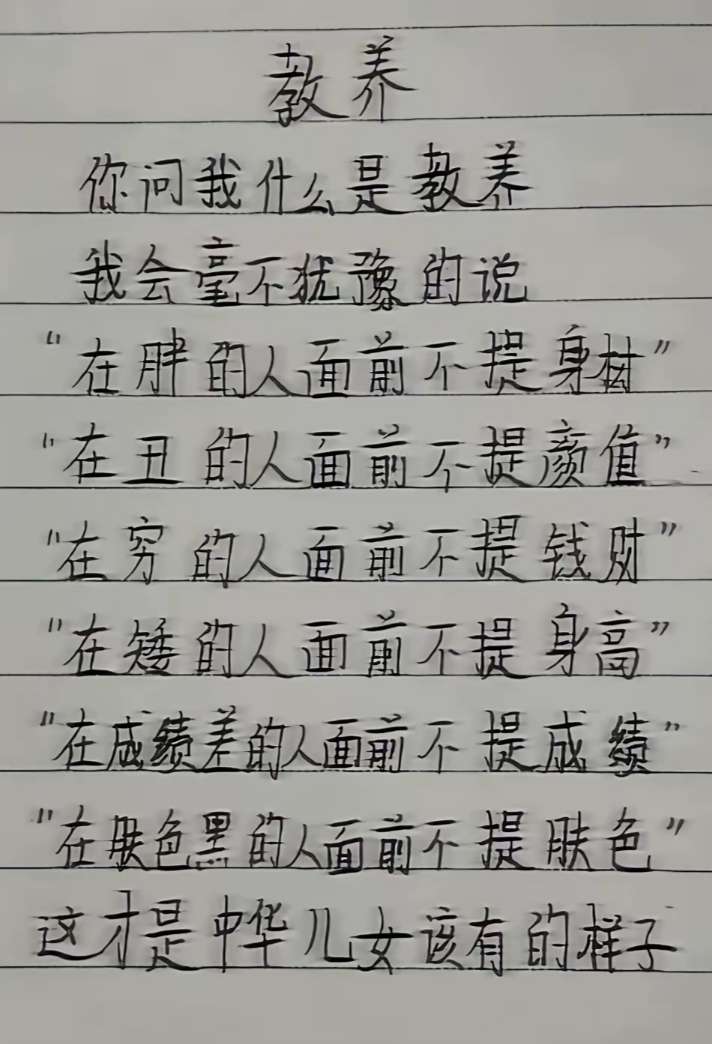 教养
你问我什么是教养
我会毫不犹豫的说
“在胖的人面前不提身材”
“在丑的人面前不提颜值”
“在穷的人面前不提钱财”
“在矮的人面前不提身高”
“在成绩差的人面前不提成绩”
“在肤色黑的人面前不提肤色”
这才是中华儿女该有的样子